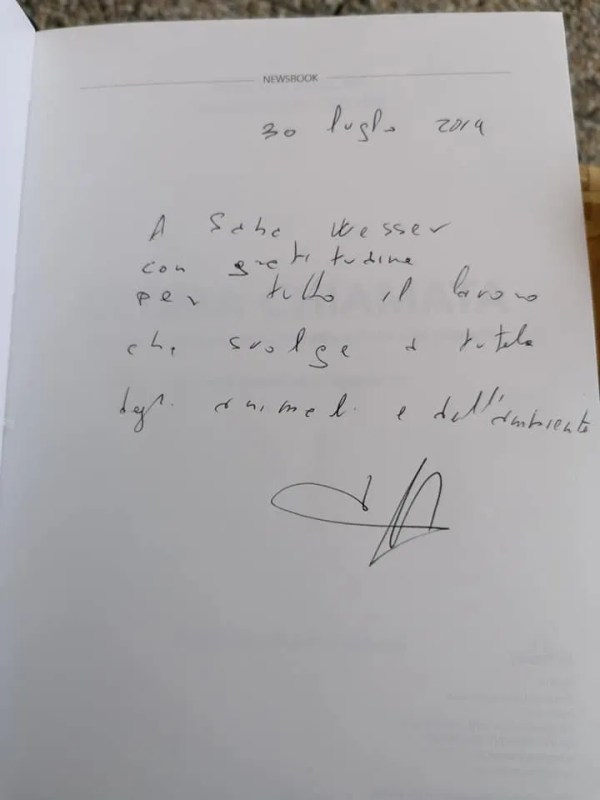 NEWSBOOK
30 luglio 2019
A Sabe Wesser
con gratitudine
per tutto il lavoro
che svolge a tutela
degli animali e dell'ambiente